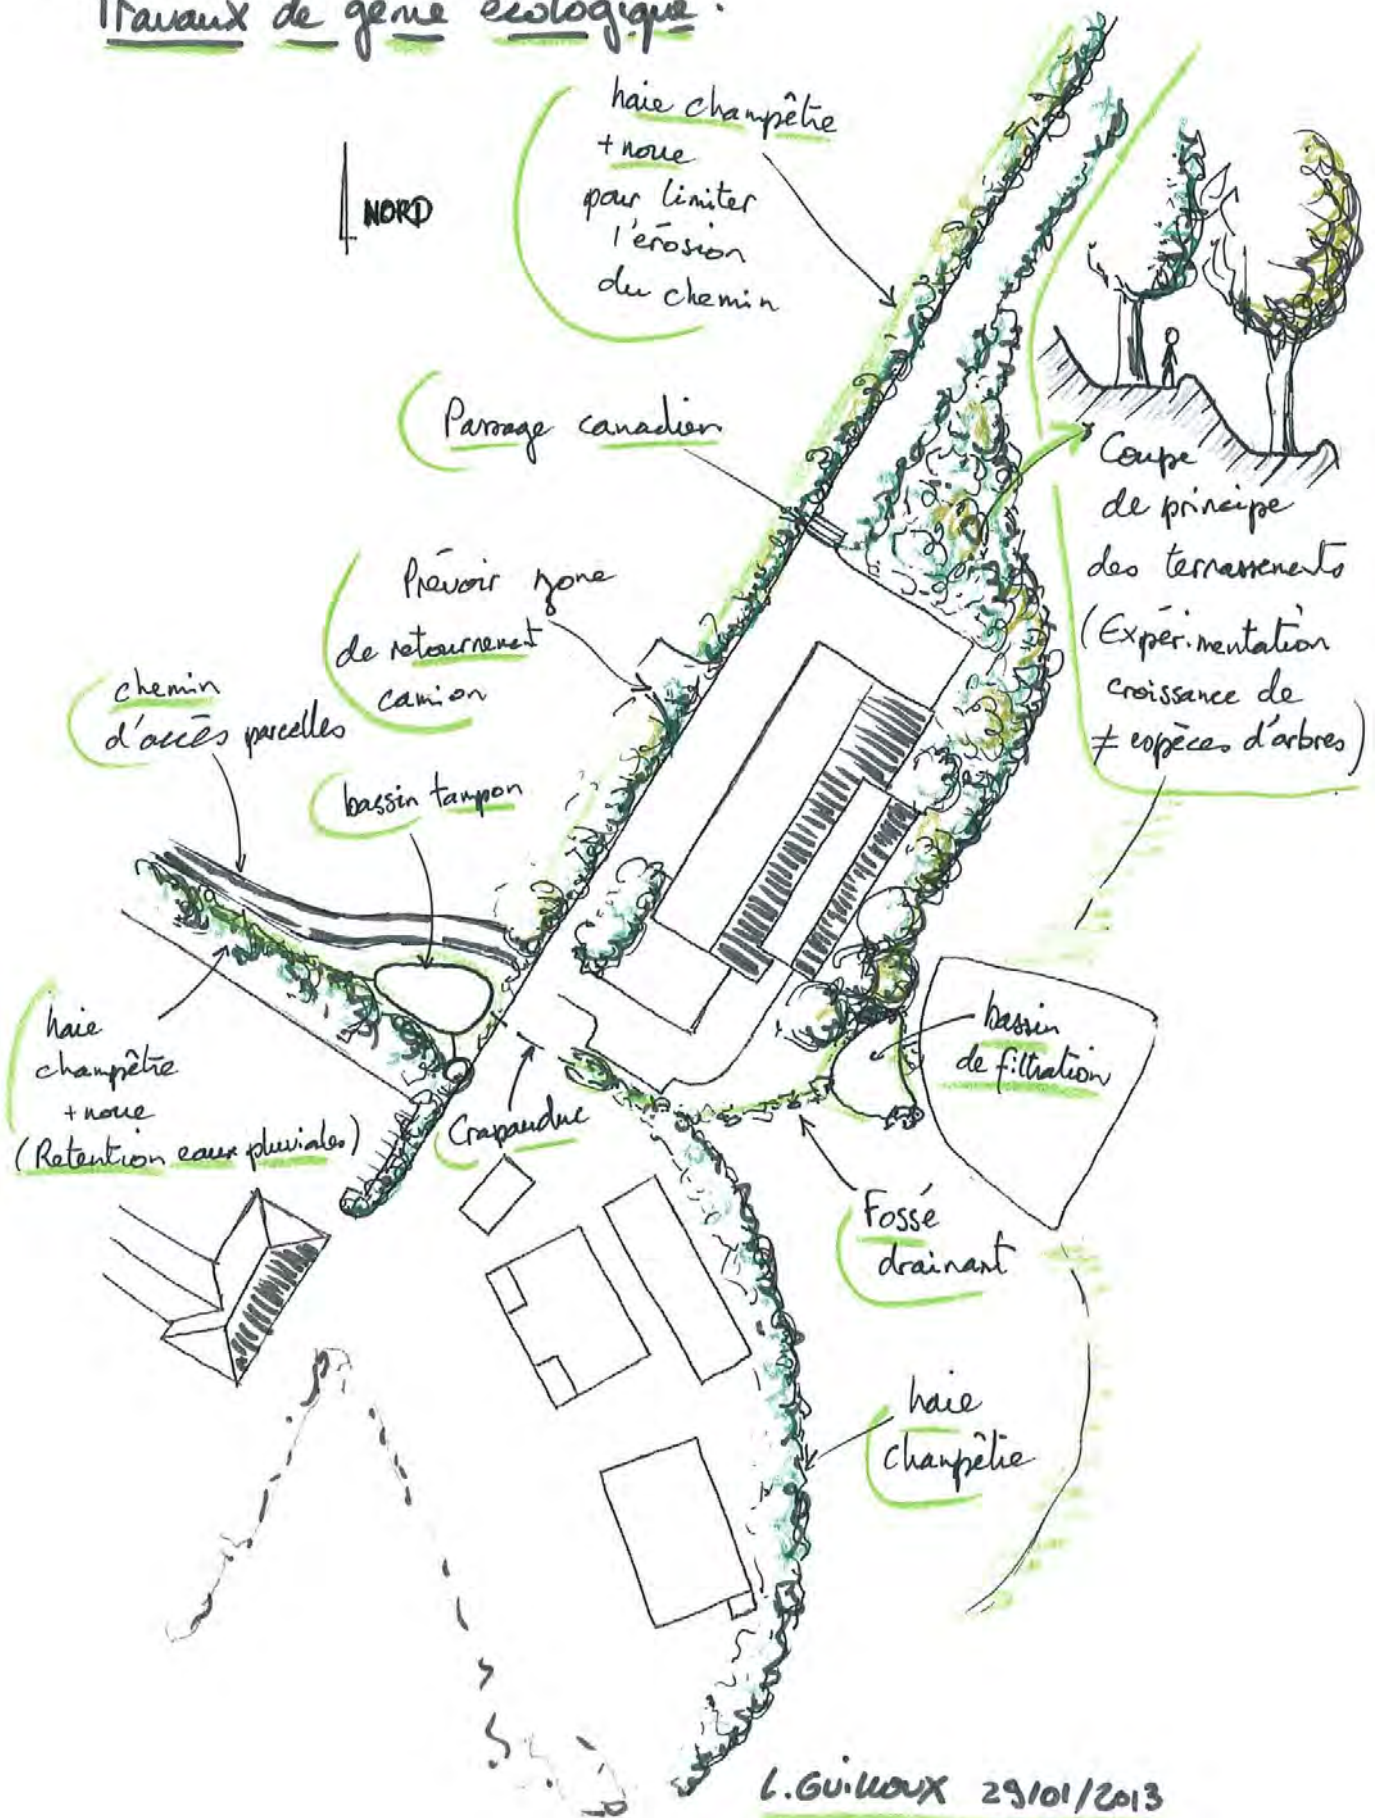 Travaux de génie écologique.
haie champêtre
+ noue
pour limiter
l'érosion
du chemin
NORD
Passage canadien
Coupe
de principe
des terrassements
(Expérimentation
croissance de
≠ espèces d'arbres)
Prévoir zone
de retournement
camion
chemin
d'accès parcelles
bassin tampon
haie
champêtre
+ noue
(Retention eaux pluviales)
Crapauduc
bassin
de filtration
Fossé
drainant
haie
champêtre
L. GUILLOUX 29/01/2013